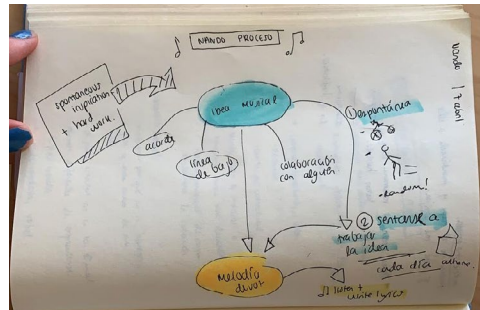 NANDO PROCESO
Nando 17 abril
spontaneous
inspiration
+ hard
work.
idea musical
acorde
línea
de bajo
colaboración
con alguien
① Espontánea
random!
② sentarse a
trabajar
la idea
cada día
Melodía
write lyrics